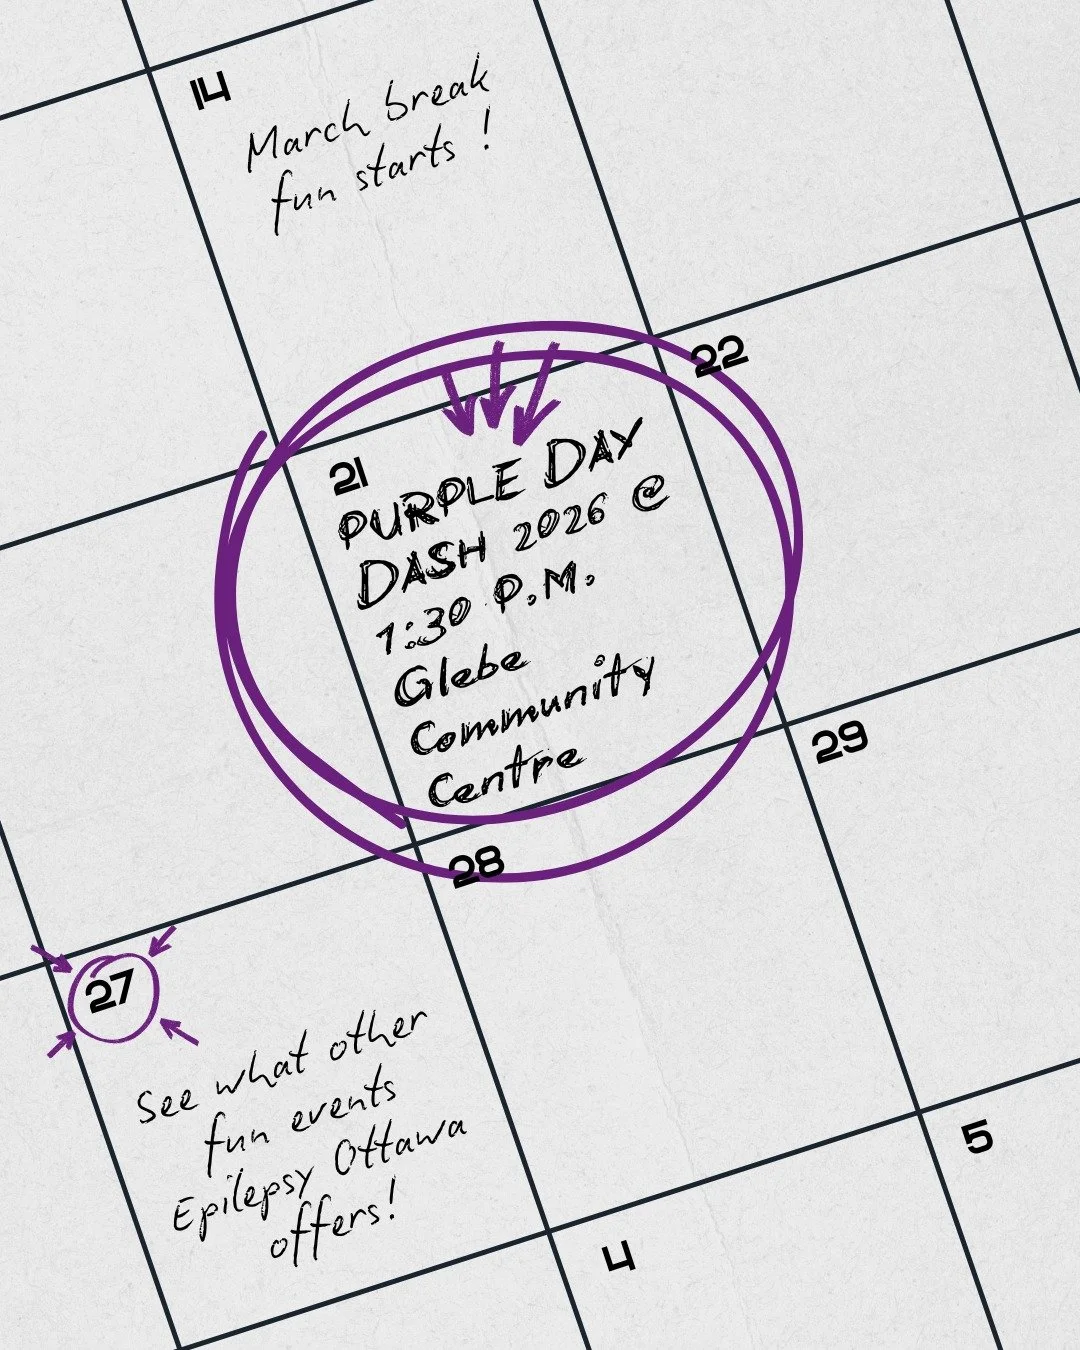 14
March break
fun starts !
22
21
PURPLE DAY
DASH 2026 @
1:30 P.M.
Glebe
Community
Centre
29
28
27
See what other
fun events
Epilepsy Ottawa
offers!
5
4